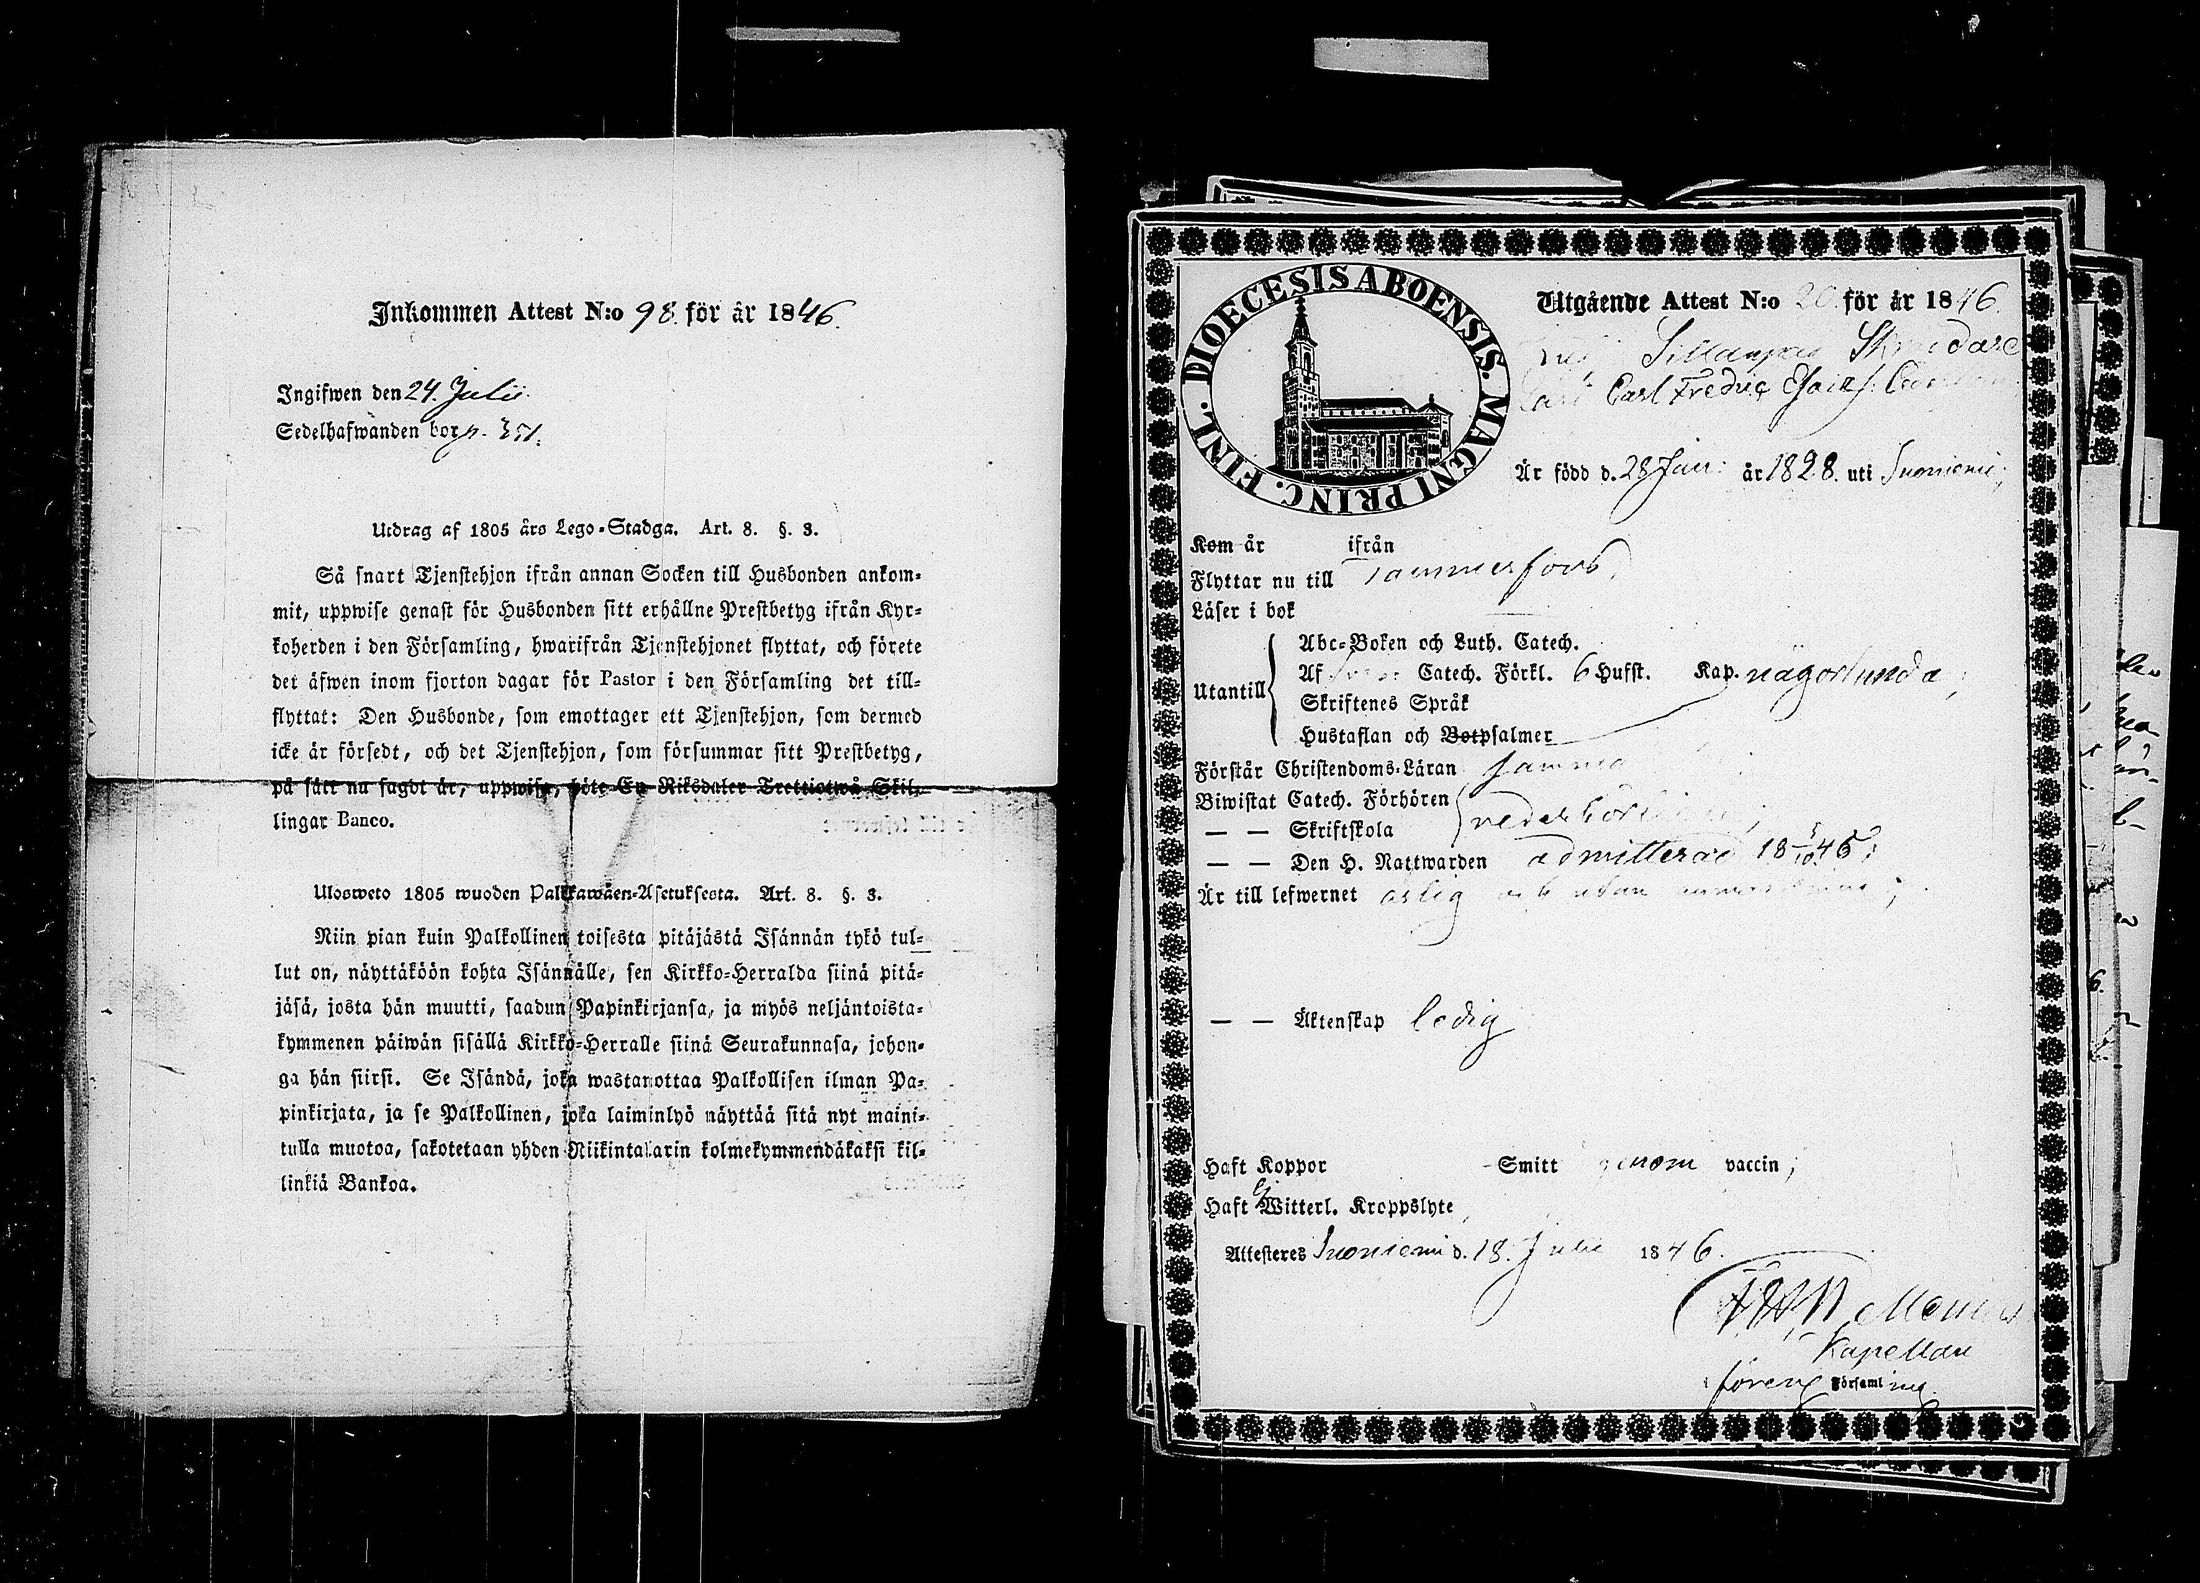 Inkommen Attest N:o 98. för år 1846.
Ingifwen den 24. Julii.
Sedelhafwanden bor p. 351.
Utdrag af 1805 års Lego-Stadga. Art. 8. §. 3.
Så snart Tjenstehjon ifrån annan Socken till Husbonden ankom-
mit, uppwise genast för Husbonden sitt erhållne Prestbetyg ifrån Kyr-
koherden i den Församling, hwarifrån Tjenstehjonet flyttat, och förete
det äfwen inom fjorton dagar för Pastor i den Församling det till-
flyttat: Den Husbonde, som emottager ett Tjenstehjon, som dermed
icke är försedt, och det Tjenstehjon, som försummar sitt Prestbetyg,
på sätt nu sagdt är, uppwisa, böte En Riksdaler Trettiotwå Skil-
lingar Banco.
Ulosweto 1805 wuoden Palkkawäen-Asetuksesta. Art. 8. §. 3.
Niin pian kuin Palkollinen toisesta pitäjästä Isännän tykö tul-
lut on, näyttäköön kohta Isännälle, sen Kirkko-Herralda siinä pitä-
jäsä, josta hän muutti, saadun Papinkirjansa, ja myös neljäntoista-
kymmenen päiwän sisällä Kirkko-Herralle siinä Seurakunnasa, johon-
ga hän siirsi. Se Isändä, joka wastanottaa Palkollisen ilman Pa-
pinkirjata, ja se Palkollinen, joka laiminlyö näyttää sitä nyt maini-
tulla muotoa, sakotetaan yhden Riikintalarin kolmekymmendäkaksi kil-
linkiä Bankoa.
DIOECESIS ABOENSIS. MAGNI PRINC. FINL.
Utgående Attest N:o 20. för år 1846.
Sillanpää
Carl Fredric Esaiæ f.
Är född d. 28 Jan: år 1828. uti Suoniemi;
Kom år ifrån
Flyttar nu till Tammerfors,
Läser i bok
Utantill
Abc-Boken och Luth. Catech.
Af Catech. Förkl. 6 Hufst. Kap. någorlunda;
Skriftenes Språk
Hustaflan och Botpsalmer
Förstår Christendoms-Läran samma
Biwistat Catech. Förhören
— — Skriftskola
— — Den H. Nattwarden admitterad 18 5/10 45;
Är till lefwernet ärlig och utan anmärkning;
— — Äktenskap ledig
Haft Koppor Smitt genom vaccin;
Haft ej Witterl. Kroppslyte,
Attesteres Suoniemi d. 18. Julii 1846.
Kapellan
Församling.